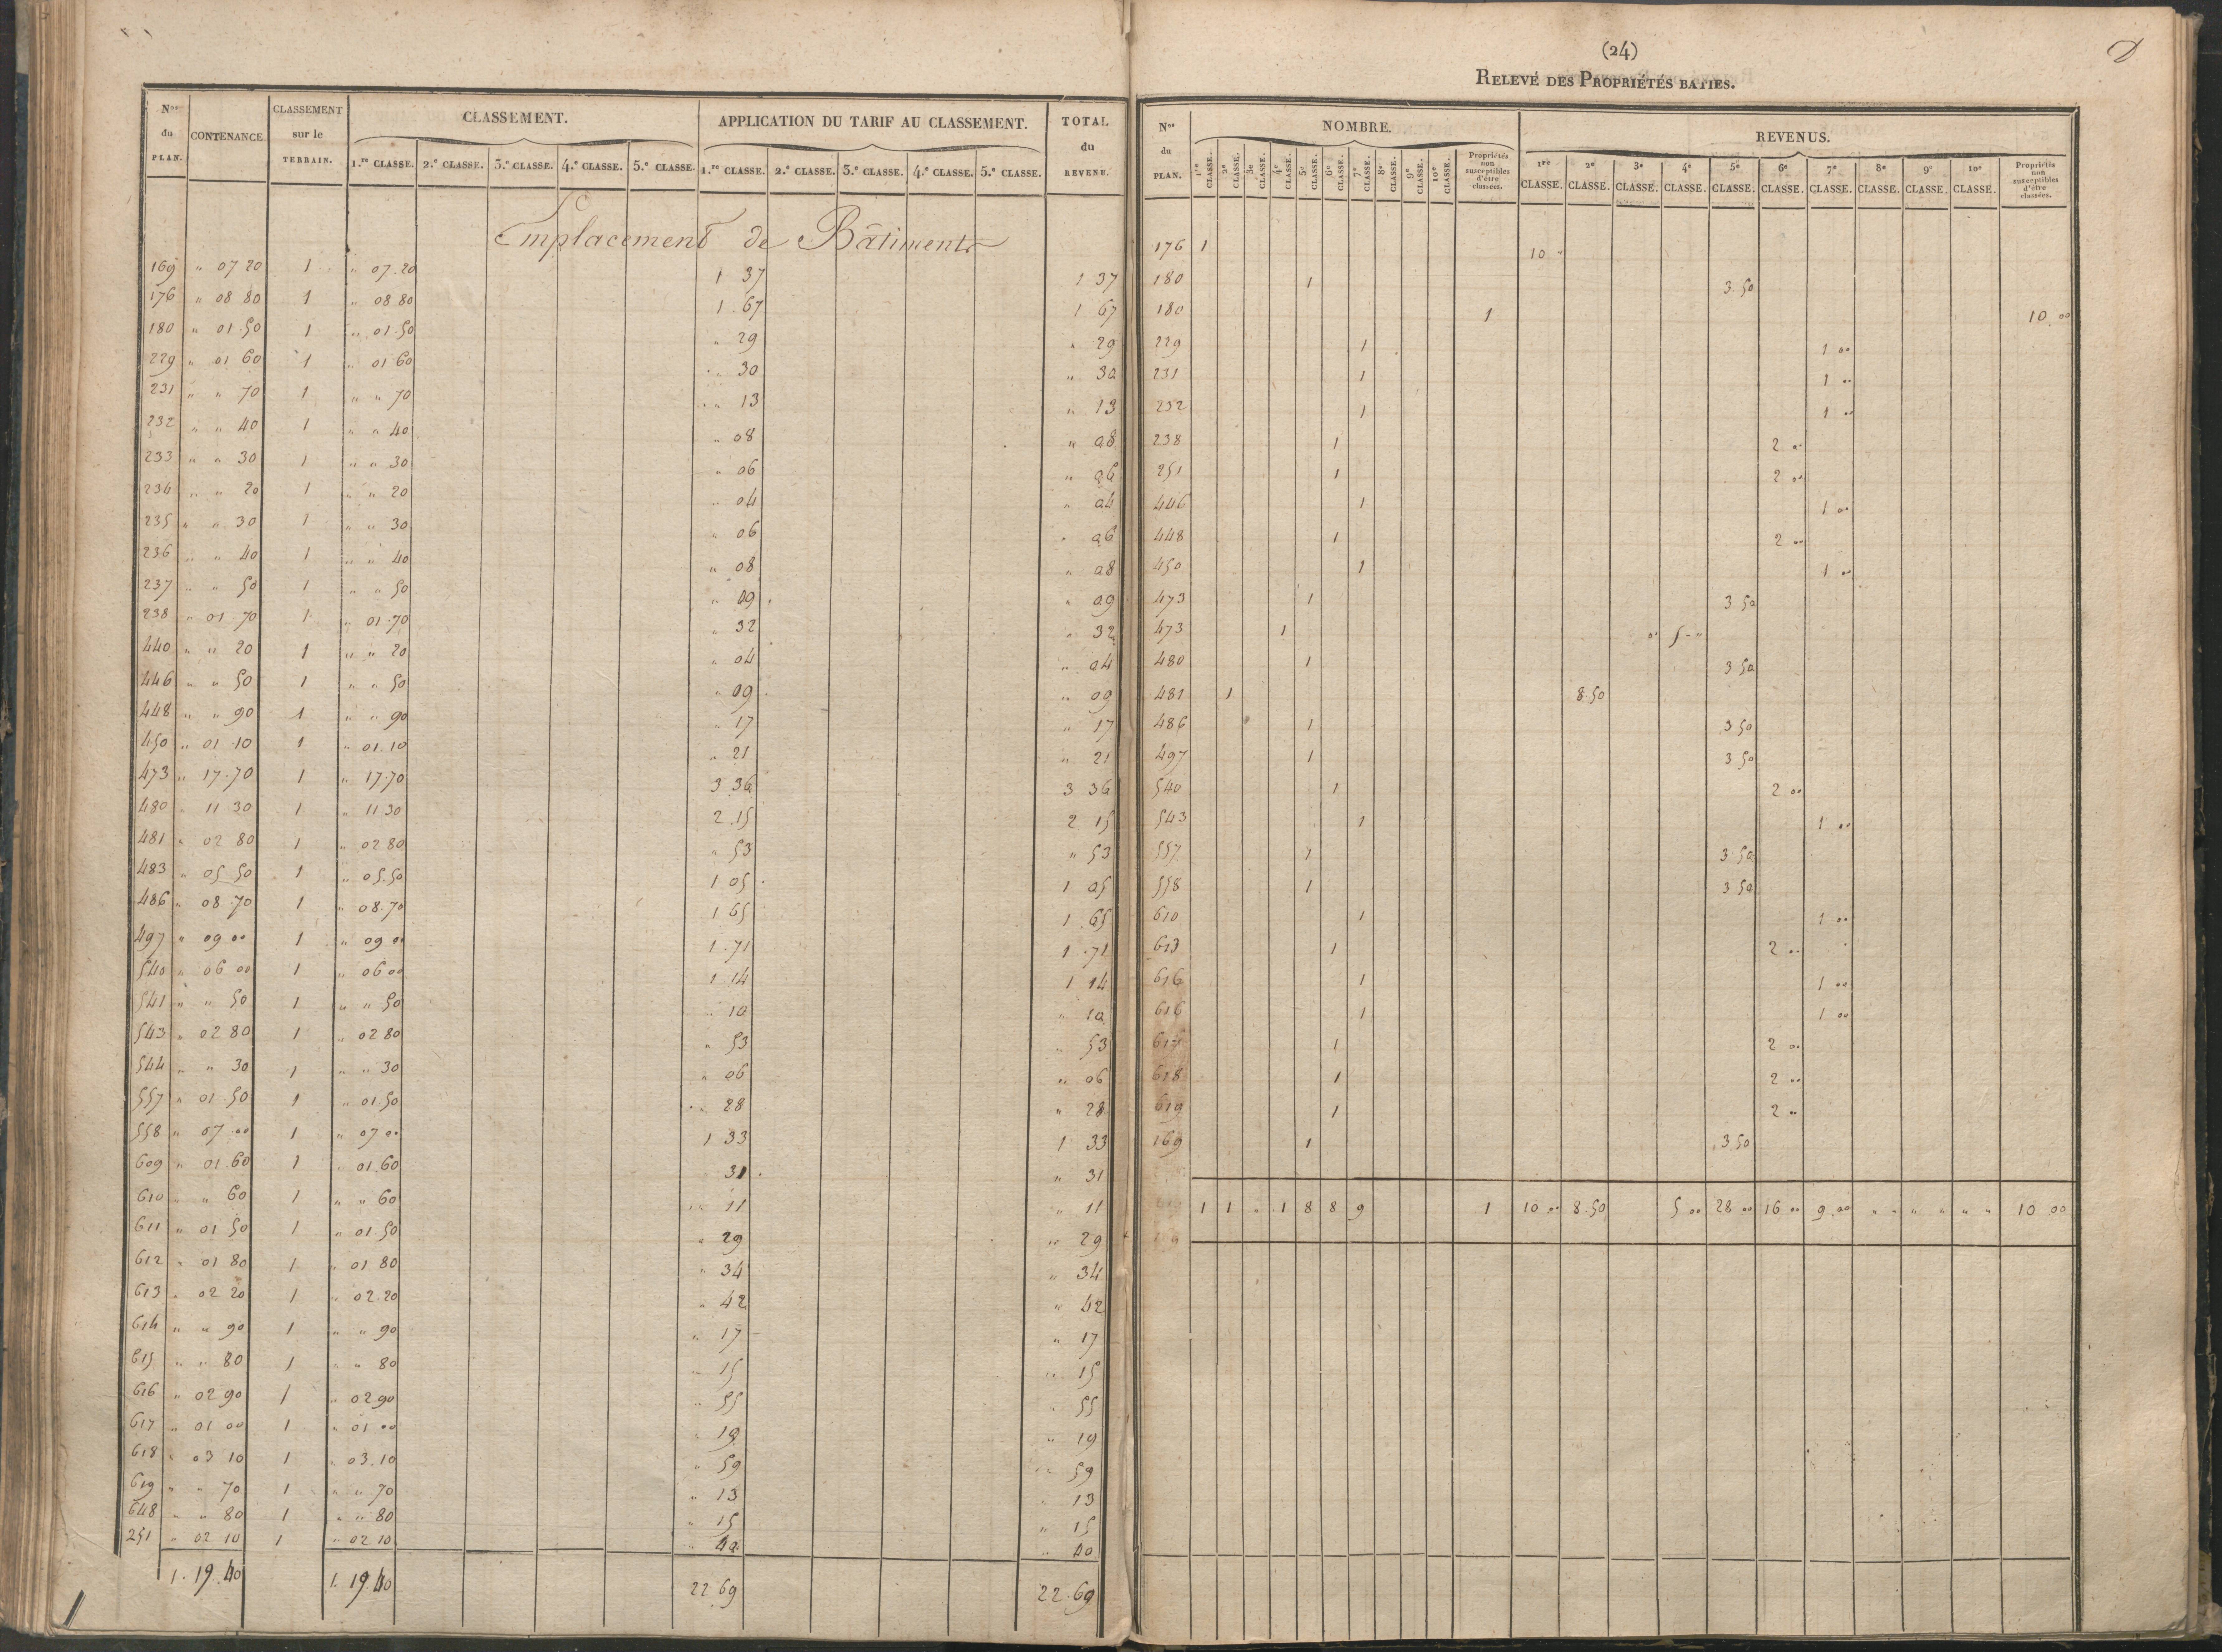 Nos du PLAN. CONTENANCE. CLASSEMENT sur le TERRAIN. CLASSEMENT. APPLICATION DU TARIF AU CLASSEMENT. TOTAL du REVENU.
1.re CLASSE. 2.e CLASSE. 3.e CLASSE. 4.e CLASSE. 5.e CLASSE. 1.re CLASSE. 2.e CLASSE. 3.e CLASSE. 4.e CLASSE. 5.e CLASSE.
Emplacement de Bâtiments
169 " 07 20 1 " 07.20 1 37 1 37
176 " 08 80 1 " 08 80 1.67 1 67
180 " 01.50 1 " 01.50 " 29 " 29
229 " 01 60 1 " 01 60 " 30 " 30
231 " " 70 1 " " 70 " 13 " 13
232 " " 40 1 " " 40 " 08 " 08
233 " " 30 1 " " 30 " 06 " 06
234 " " 20 1 " " 20 " 04 " 04
235 " " 30 1 " " 30 " 06 " 06
236 " " 40 1 " " 40 " 08 " 08
237 " " 50 1 " " 50 " 09 " 09
238 " 01 70 1 " 01.70 " 32 " 32
440 " " 20 1 " " 20 " 04 " 04
446 " " 50 1 " " 50 " 09 " 09
448 " " 90 1 " " 90 " 17 " 17
450 " 01 10 1 " 01.10 " 21 " 21
473 " 17.70 1 " 17.70 3 36 3 36
480 " 11 30 1 " 11 30 2.15 2 15
481 " 02 80 1 " 02 80 " 53 " 53
483 " 05 50 1 " 05.50 1 05 1 05
486 " 08.70 1 " 08.70 1 65 1.65
497 " 09 00 1 " 09 00 1.71 1.71
540 " 06 00 1 " 06 00 1 14 1 14
541 " " 50 1 " " 50 " 10 " 10
543 " 02 80 1 " 02 80 " 53 " 53
544 " " 30 1 " " 30 " 06 " 06
557 " 01.50 1 " 01.50 " 28 " 28
558 " 07 00 1 " 07 00 1 33 1 33
609 " 01.60 1 " 01.60 " 31 " 31
610 " " 60 1 " " 60 " 11 " 11
611 " 01 50 1 " 01.50 " 29 " 29
612 " 01 80 1 " 01 80 " 34 " 34
613 " 02 20 1 " 02.20 " 42 " 42
614 " " 90 1 " " 90 " 17 " 17
615 " " 80 1 " " 80 " 15 " 15
616 " 02 90 1 " 02 90 " 55 " 55
617 " 01 00 1 " 01 00 " 19 " 19
618 " 03 10 1 " 03.10 " 59 " 59
619 " " 70 1 " " 70 " 13 " 13
648 " " 80 1 " " 80 " 15 " 15
251 " 02 10 1 " 02 10 " 40 " 40
1.19.40 1.19 40 22 69 22.69
(24)
RELEVÉ DES PROPRIÉTÉS BATIES.
Nos du PLAN. NOMBRE. REVENUS.
1re CLASSE. 2e CLASSE. 3e CLASSE. 4e CLASSE. 5e CLASSE. 6e CLASSE. 7e CLASSE. 8e CLASSE. 9e CLASSE. 10e CLASSE. Propriétés non susceptibles d'être classées. 1re CLASSE. 2e CLASSE. 3e CLASSE. 4e CLASSE. 5e CLASSE. 6e CLASSE. 7e CLASSE. 8e CLASSE. 9e CLASSE. 10e CLASSE. Propriétés non susceptibles d'être classées.
176 1 10 "
180 1 3.50
180 1 10.00
229 1 1 00
231 1 1 00
232 1 1 00
238 1 2 00
251 1 2 00
446 1 1 00
448 1 2 00
450 1 1 00
473 1 3 50
473 1 5 - "
480 1 3 50
481 1 8.50
486 1 3 50
497 1 3 50
540 1 2 00
543 1 1 00
557 1 3 50
558 1 3 50
610 1 1 00
613 1 2 00
616 1 1 00
616 1 1 00
617 1 2 00
618 1 2 00
619 1 2 00
169 1 3.50
1 1 " 1 8 8 9 1 10 00 8.50 5 00 28 00 16 00 9.00 " " " " " " 10 00